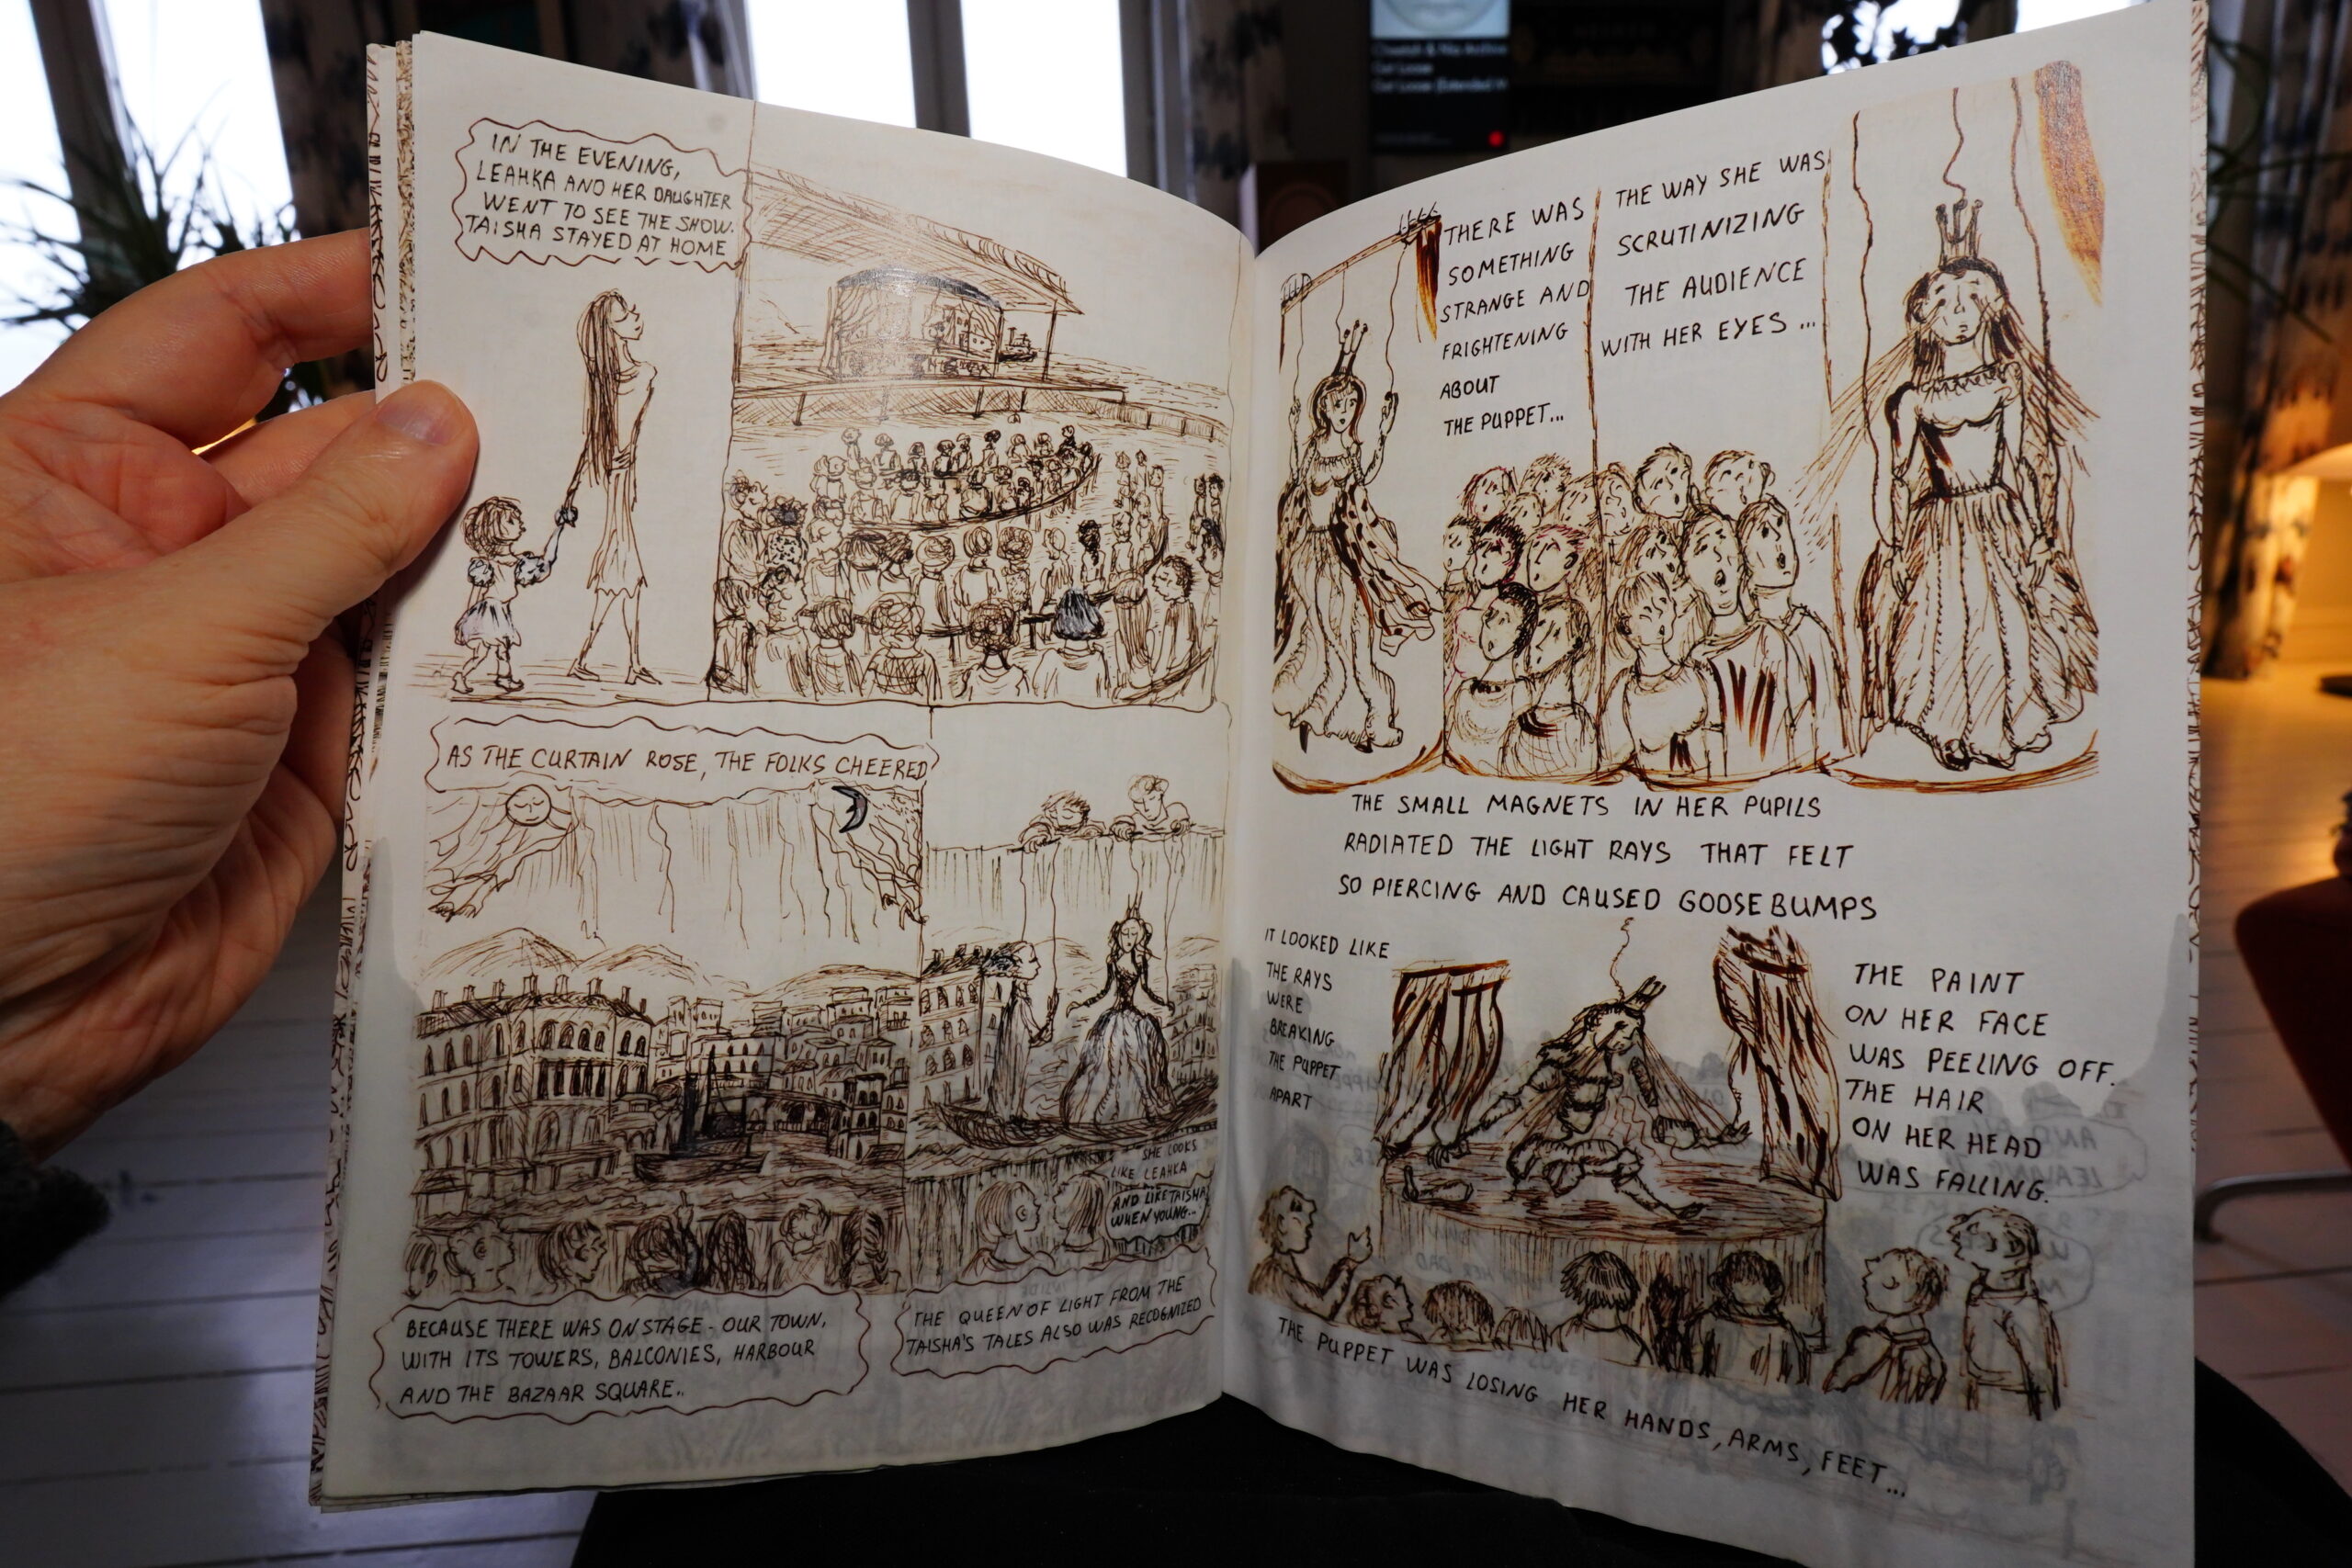 IN THE EVENING,
LEAHKA AND HER DAUGHTER
WENT TO SEE THE SHOW.
TAISHA STAYED AT HOME
AS THE CURTAIN ROSE, THE FOLKS CHEERED
SHE LOOKS
LIKE LEAHKA
AND LIKE TAISHA
WHEN YOUNG...
BECAUSE THERE WAS ON STAGE - OUR TOWN,
WITH ITS TOWERS, BALCONIES, HARBOUR
AND THE BAZAAR SQUARE..
THE QUEEN OF LIGHT FROM THE
TAISHA'S TALES ALSO WAS RECOGNIZED
THERE WAS
SOMETHING
STRANGE AND
FRIGHTENING
ABOUT
THE PUPPET...
THE WAY SHE WAS
SCRUTINIZING
THE AUDIENCE
WITH HER EYES ...
THE SMALL MAGNETS IN HER PUPILS
RADIATED THE LIGHT RAYS THAT FELT
SO PIERCING AND CAUSED GOOSEBUMPS
IT LOOKED LIKE
THE RAYS
WERE
BREAKING
THE PUPPET
APART
THE PAINT
ON HER FACE
WAS PEELING OFF.
THE HAIR
ON HER HEAD
WAS FALLING.
THE PUPPET WAS LOSING HER HANDS, ARMS, FEET...
Get Loose
Get Loose (Extended